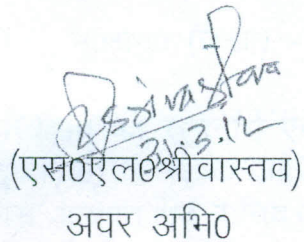 Srivastava
31.3.12
(एस0एल0श्रीवास्तव)
अवर अभि0